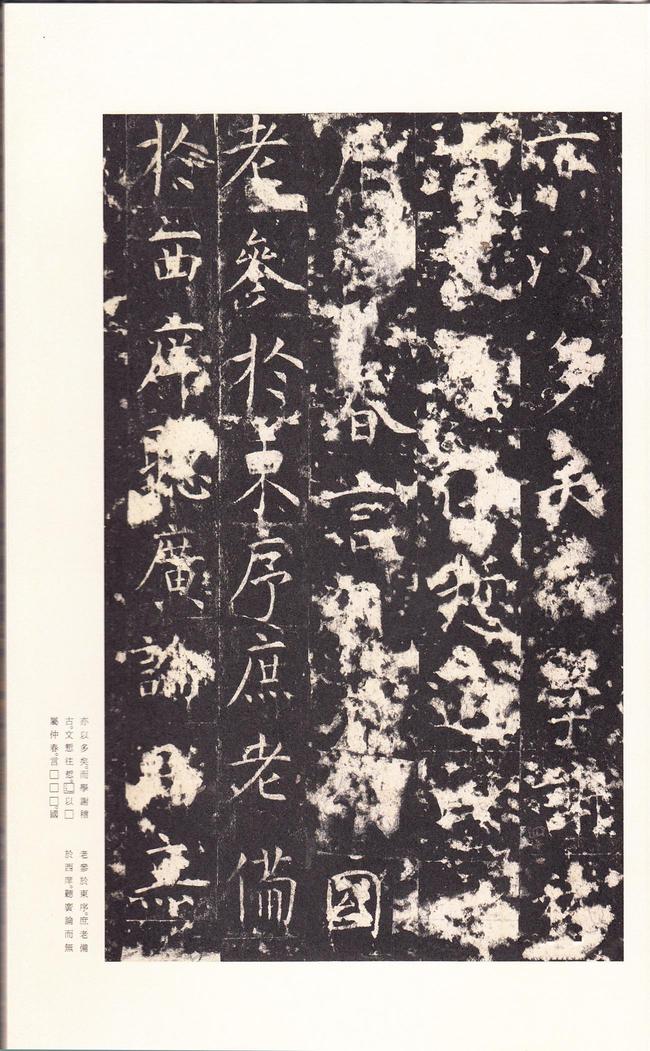 亦以多矣而學謝稽
悊以
春言國
老參於東序庶老備
於西庠聽廣論而無
亦以多矣。而學謝稽
古。文慙往悊。以□
屬仲春。言□□□。國
老參於東序。庶老備
於西庠。聽廣論而無